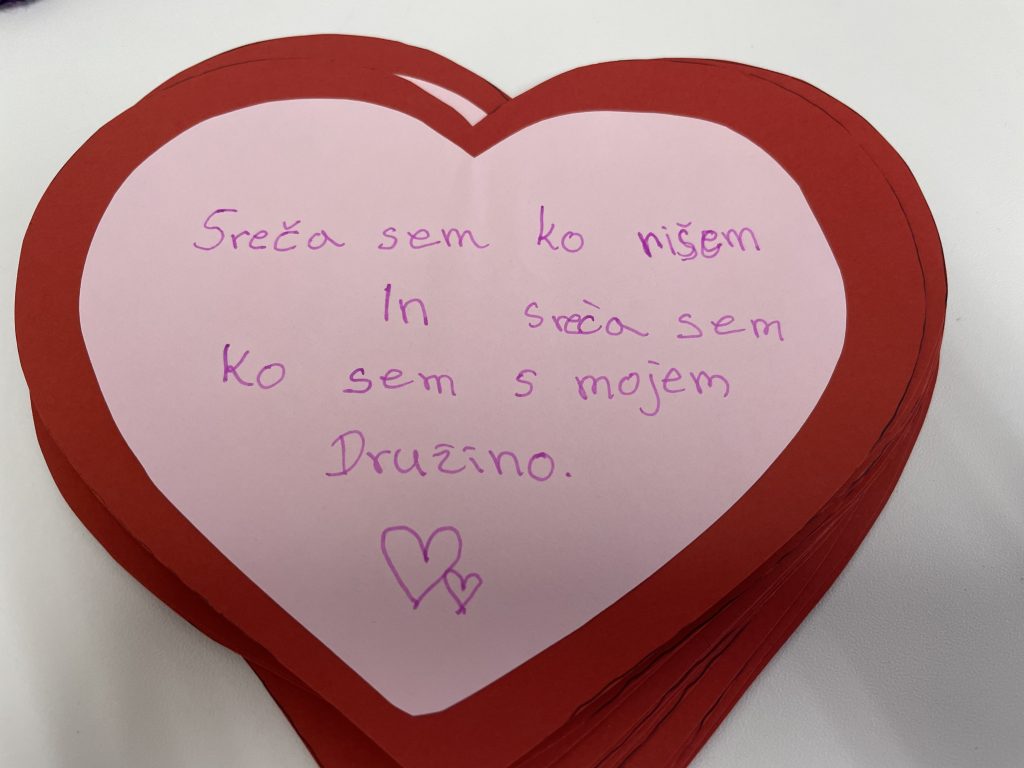 Sreča sem ko rišem
In sreča sem
Ko sem s mojem
Družino.